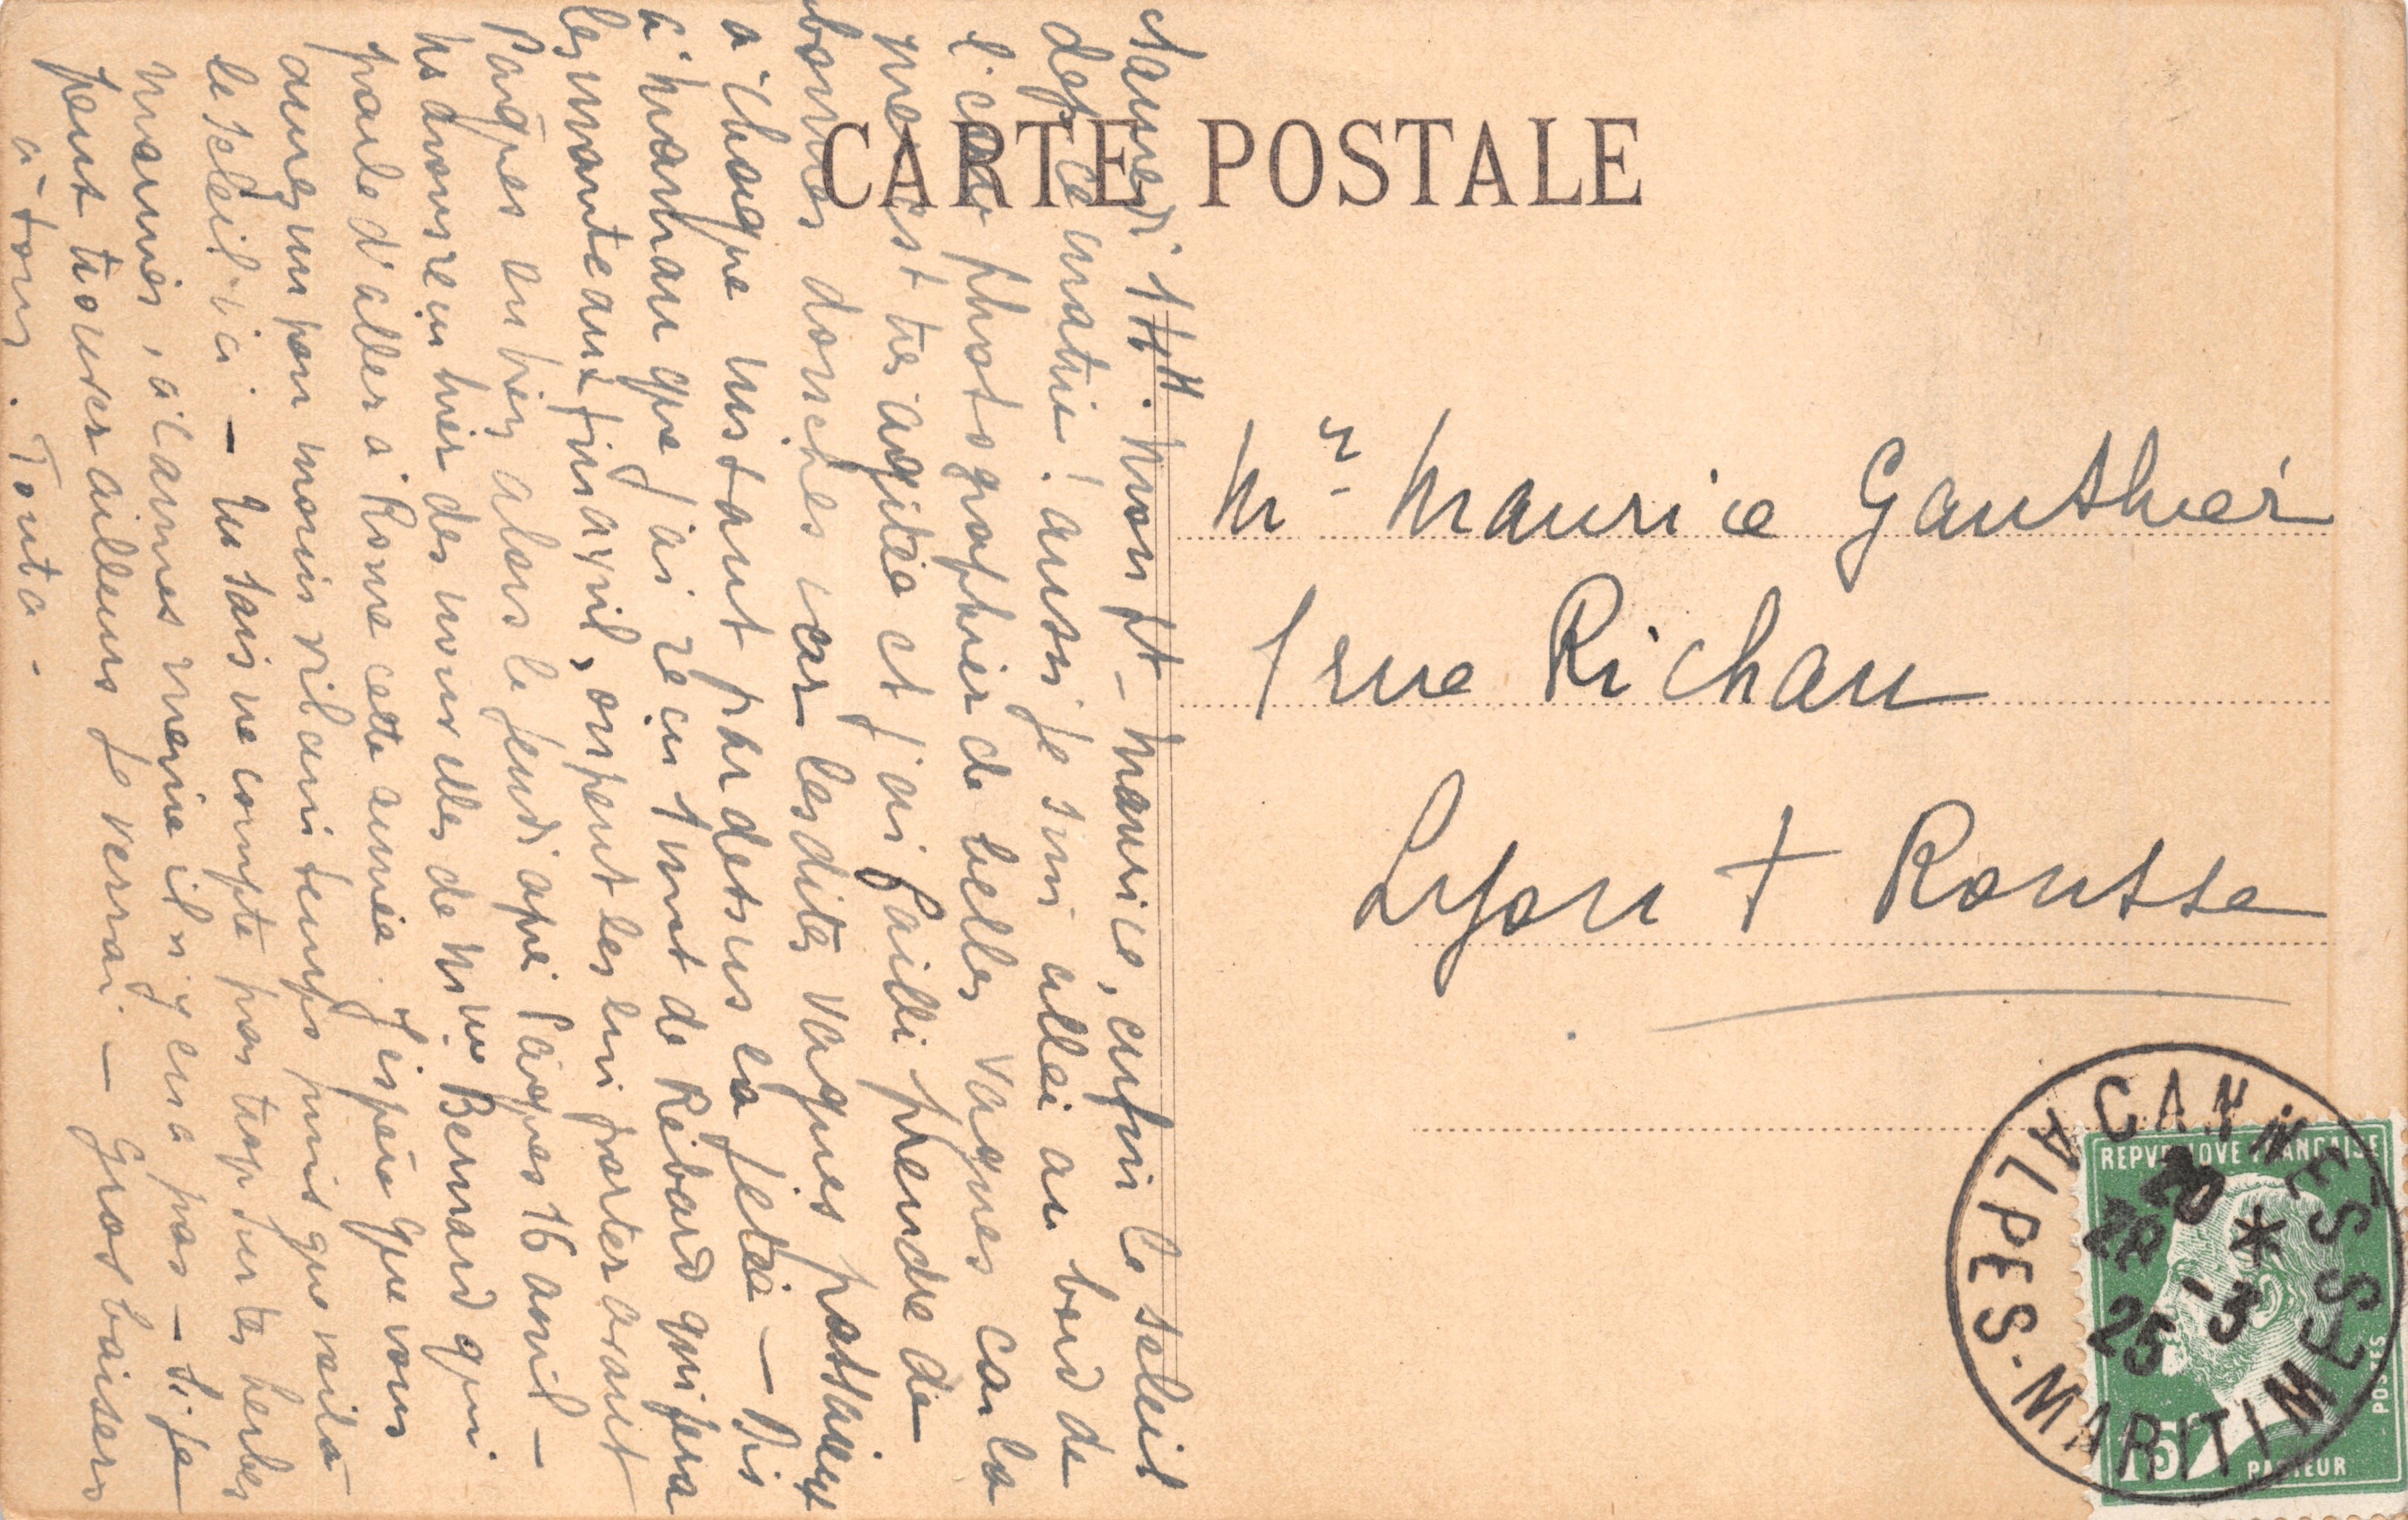 CARTE POSTALE
Samedi 1H. Mon pt-Maurice, enfin le soleil
dep ce matin! aussi je suis allée au bord de
l'eau photographier de belles vagues car la
mer est très agitée et j'ai failli prendre de
bonnes douches car lesdites vagues passaient
à chaque instant par dessus la jetée - Dis
à maman que j'ai reçu 1 mot de Rebard qui fera
les manteaux fin avril, on peut les lui porter avant
Pâques ou bien alors le jeudi après Pâques 16 avril -
Ns avons reçu hier des nouvelles de Mme Bernard qui
parle d'aller à Rome cette année. J'espère que vous
aurez un peu moins vilain temps puisque voilà
le soleil ici - Ns sais ne compte pas trop sur tes herbes
marines, à Cannes même il n'y en a pas - si je
peux trouver ailleurs je verrai. - Gros baisers
à tous. Tonta.
Mr. Maurice Gauthier
1 rue Richan
Lyon + Rousse
CANNES
ALPES-MARITIMES
20
28 -3
25
REPVBLIQVE FRANCAISE
POSTES
15c
PASTEUR